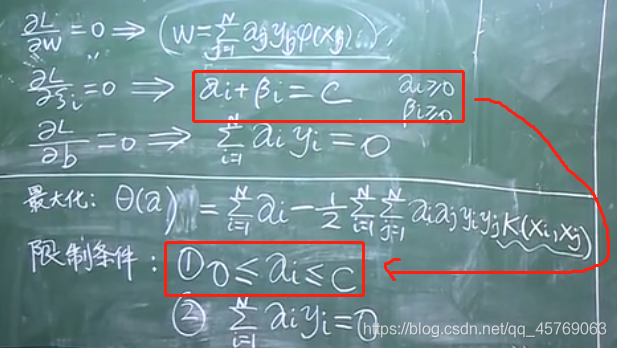 ∂L/∂w = 0 ⇒ (w = Σ_{j=1}^{N} a_j y_j φ(x_j))
∂L/∂ξ_i = 0 ⇒ a_i + β_i = C   a_i ≥ 0
β_i ≥ 0
∂L/∂b = 0 ⇒ Σ_{i=1}^{N} a_i y_i = 0
最大化: θ(a) = Σ_{i=1}^{N} a_i - 1/2 Σ_{i=1}^{N} Σ_{j=1}^{N} a_i a_j y_i y_j K(x_i, x_j)
限制条件: ① 0 ≤ a_i ≤ C
② Σ_{i=1}^{N} a_i y_i = 0
https://blog.csdn.net/qq_45769063